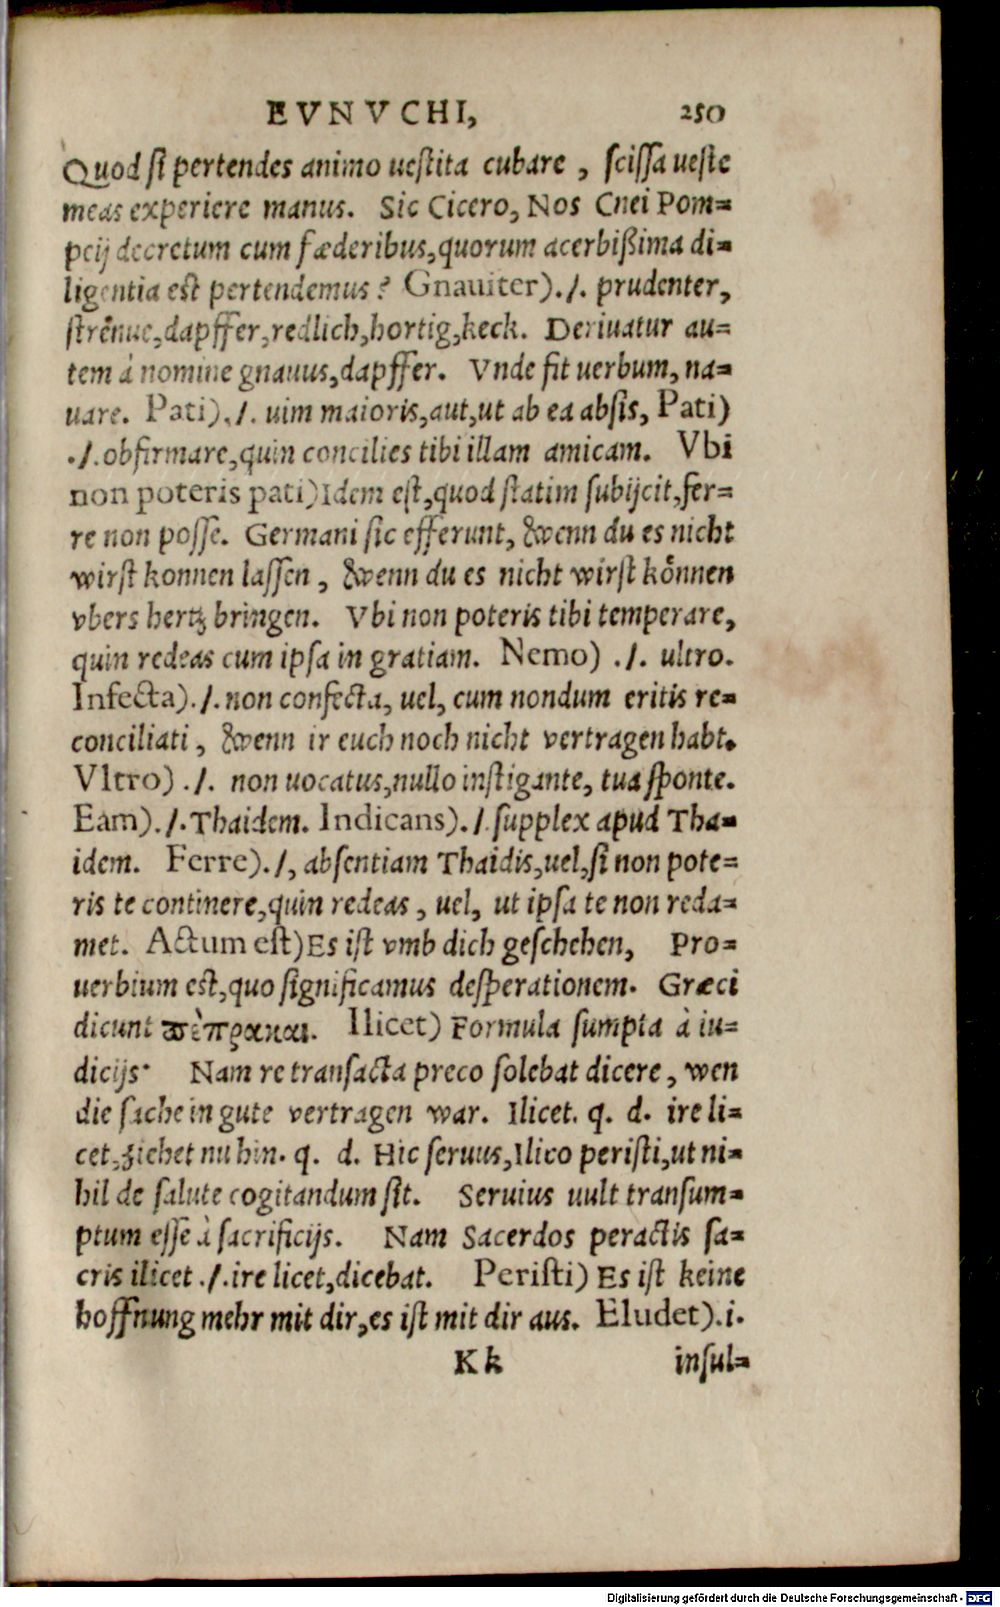 EVNVCHI, 250
Quod si pertendes animo uestita cubare, scissa ueste
meas experiere manus. Sic Cicero, Nos Cnei Pom=
peij decretum cum fæderibus, quorum acerbißima di=
ligentia est pertendemus? Gnauiter)./. prudenter,
strẽnue, dapffer, redlich, hortig, keck. Deriuatur au=
tem à nomine gnauus, dapffer. Vnde fit uerbum, na=
uare. Pati)./. uim maioris, aut, ut ab ea absis, Pati)
./. obfirmare, quin concilies tibi illam amicam. Vbi
non poteris pati) Idem est, quod statim subijcit, fer=
re non posse. Germani sic efferunt, wenn du es nicht
wirst konnen lassen, wenn du es nicht wirst kônnen
vbers hertz bringen. Vbi non poteris tibi temperare,
quin redeas cum ipsa in gratiam. Nemo) ./. ultro.
Infecta)./. non confecta, uel, cum nondum eritis re=
conciliati, wenn ir euch noch nicht vertragen habt.
Vltro) ./. non uocatus, nullo instigante, tua sponte.
Eam)./. Thaidem. Indicans)./. supplex apud Tha=
idem. Ferre)./, absentiam Thaidis, uel, si non pote=
ris te continere, quin redeas, uel, ut ipsa te non reda=
met. Actum est) Es ist vmb dich geschehen, Pro=
uerbium est, quo significamus desperationem. Græci
dicunt πέπρακται. Ilicet) Formula sumpta à iu=
dicijs. Nam re transacta preco solebat dicere, wen
die sache in gute vertragen war. Ilicet. q. d. ire li=
cet, ziehet nu hin. q. d. Hic seruus, Ilico peristi, ut ni=
hil de salute cogitandum sit. Seruius uult transum=
ptum esse à sacrificijs. Nam Sacerdos peractis sa=
cris ilicet ./. ire licet, dicebat. Peristi) Es ist keine
hoffnung mehr mit dir, es ist mit dir aus. Eludet).i.
Kk insul=
Digitalisierung gefördert durch die Deutsche Forschungsgemeinschaft - DFG